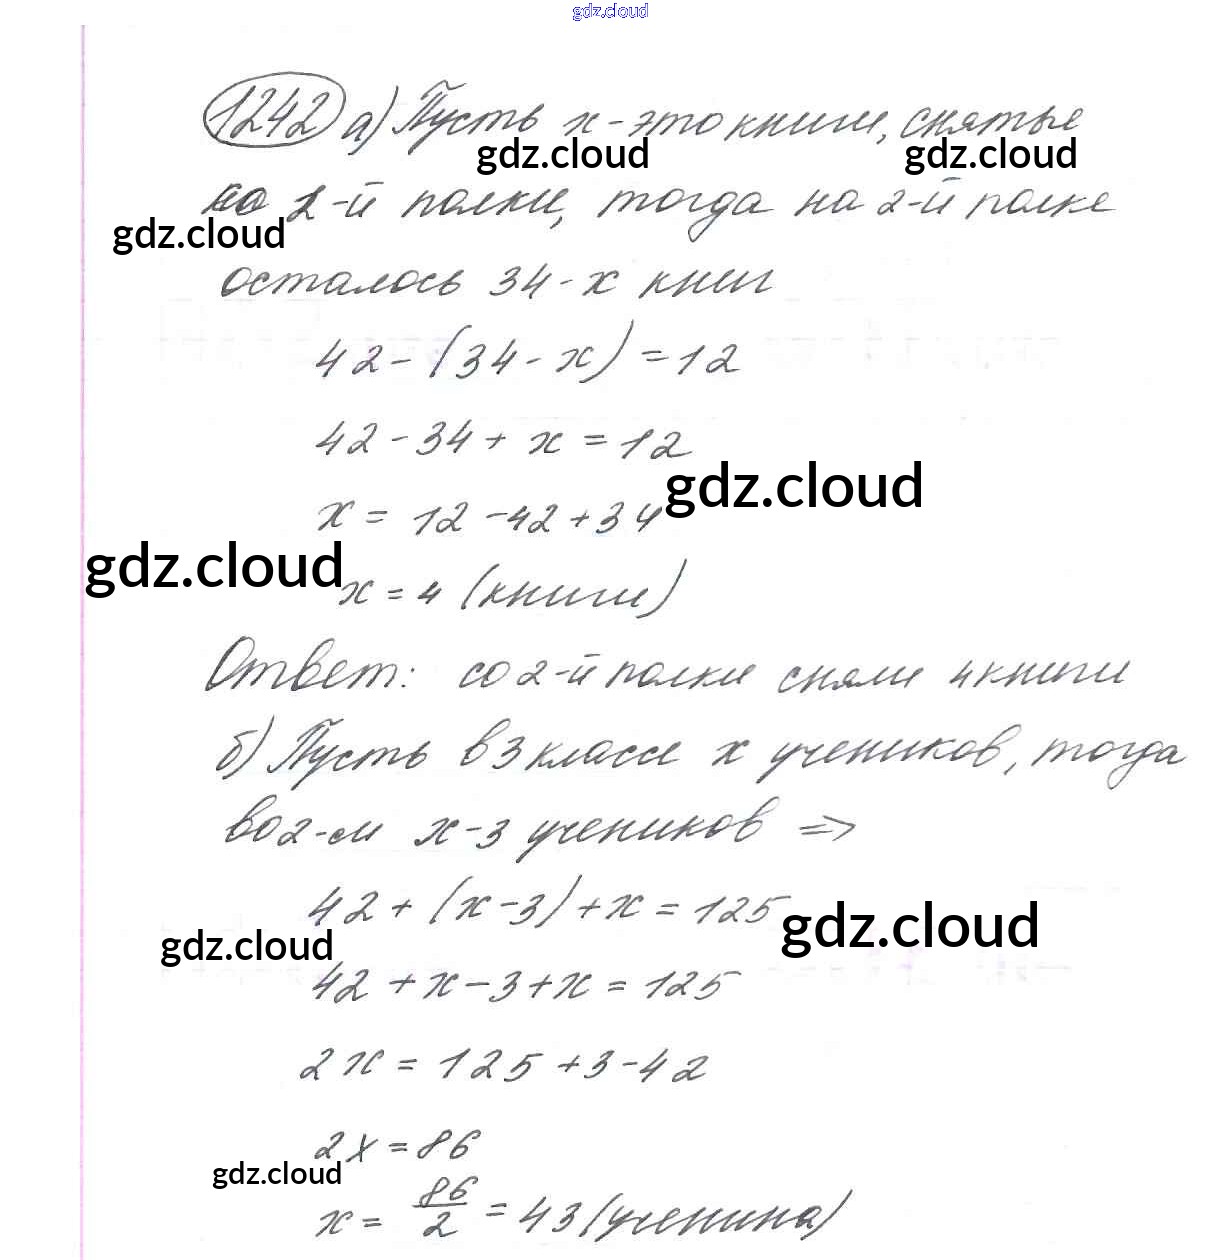 gdz.cloud
1242 а) Пусть х - это книги, снятые
gdz.cloud gdz.cloud
со 2-й полки, тогда на 2-й полке
gdz.cloud
осталось 34 - х книг
42 - (34 - х) = 12
42 - 34 + х = 12
gdz.cloud
х = 12 - 42 + 34
gdz.cloud
х = 4 (книги)
Ответ: со 2-й полки сняли 4 книги
б) Пусть в 3 классе х учеников, тогда
во 2-м х - 3 учеников =>
42 + (х - 3) + х = 125
gdz.cloud
gdz.cloud
42 + х - 3 + х = 125
2х = 125 + 3 - 42
2х = 86
gdz.cloud
х = 86/2 = 43 (ученика)